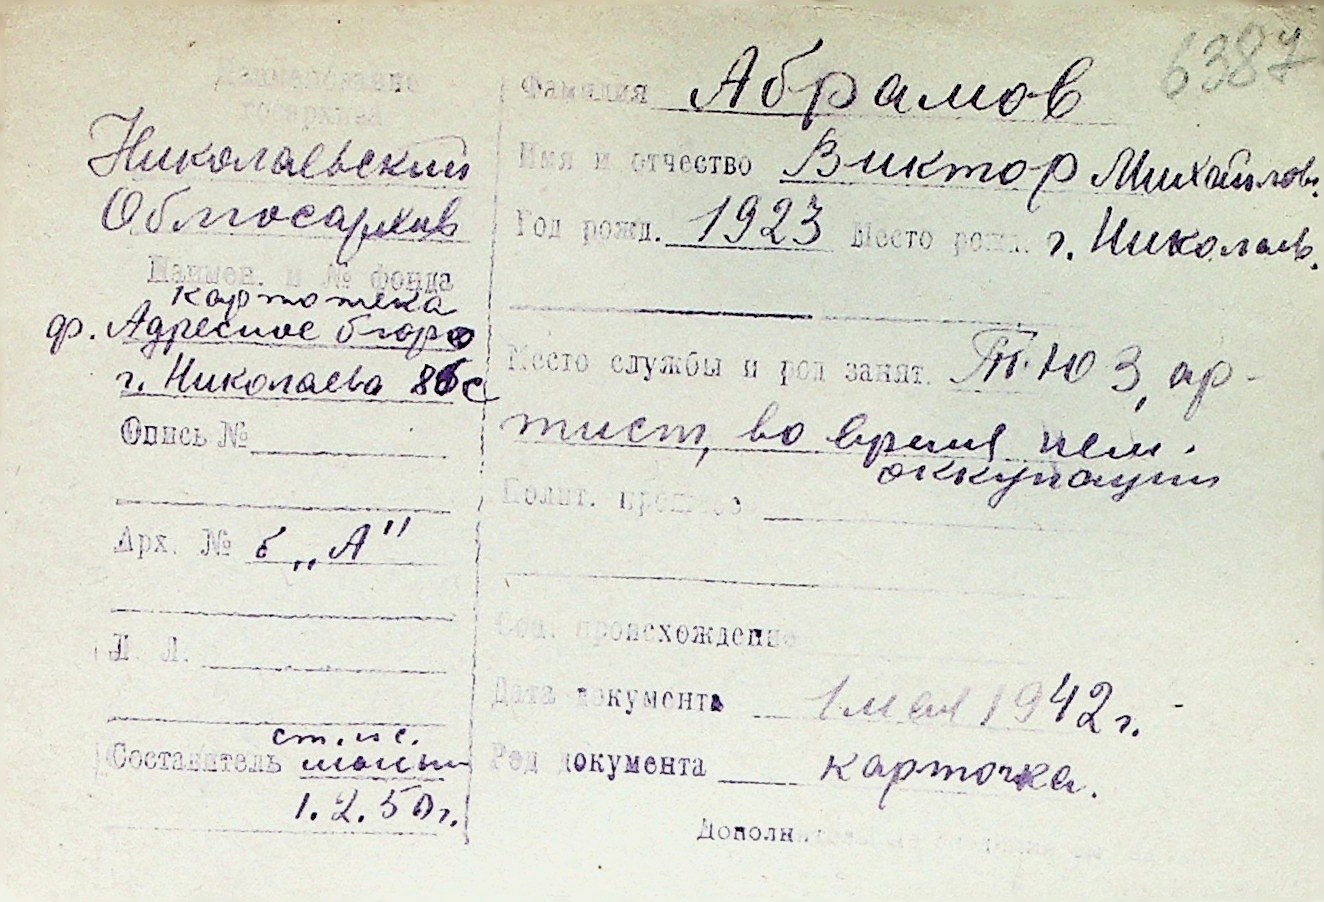 6387
Наименование
госархива
Николаевский
Облгосархив
Наимен. и № фонда
картотека
ф. Адресное бюро
г. Николаева 86с
Опись №
Арх. № б „А"
Л. Л.
Составитель ст. ис.
1.2.50г.
Фамилия Абрамов
Имя и отчество Виктор Михайлов.
Год рожд. 1923 Место рожд. г. Николаев.
Место службы и род занят. Т.Ю З, ар-
тист, во время нем.
оккупации
Полит. прошлое
Соц. происхождение
Дата документа 1 мая 1942 г.
Род документа карточка.